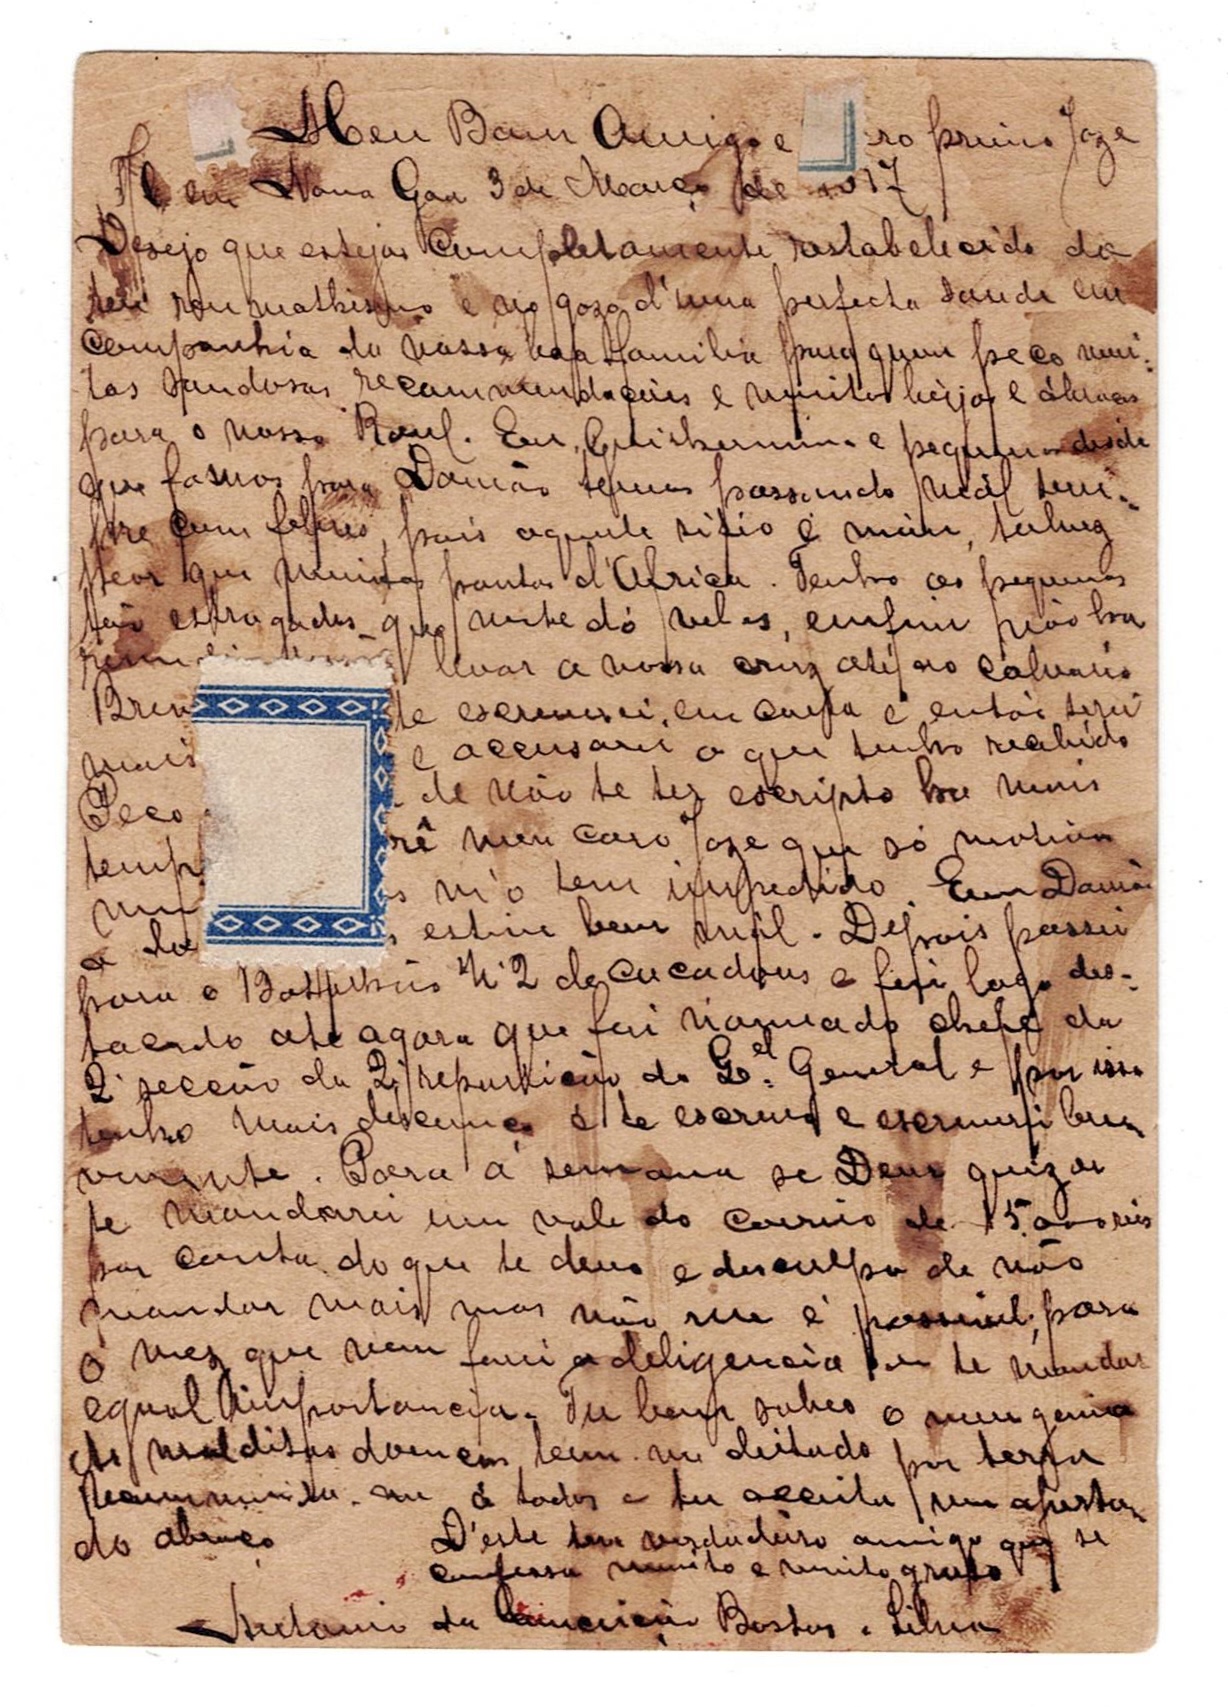 Meu Bom Amigo e ro primo Joze
em Nova Goa 3 de Março de 1917
Desejo que estejas completamente restabelecido do
teu reumathismo e no gozo d'uma perfecta saude em
companhia da nossa boa familia para quem peço mui-
tas saudosas recommendações e muitos beijos e abraços
para o nosso Raul. Eu, Guilhermina e pequenos desde
que fomos para Damão temos passando mál sem-
pre com febres, pois aquele sitio é máu, talvez
peor que muitos pontos d'Africa. Tenho os pequenos
tão estragados que mete dó vel-os, emfim não ha
levar a nossa cruz até ao calvario
Brev te escreverei em carta e então serei
mais e accusarei o que tenho recebido
Peço de não te ter escripto ha mais
temp rê meu caro Joze que só motivos
mu s m'o tem impedido Em Damão
estive bem mál. Depois passei
para o Batalhão Nº 2 de caçadores e fui logo des-
tacado até agora que fui nomeado chefe da
2ª secção da 2ª repartição do Qel. General e por isso
tenho mais descanço e te escrevo e escreverei breve
mente. Para a semana se Deus quizer
te mandarei um vale do correio de 15.000 reis
por conta do que te devo e desculpa de não
mandar mais mas não me é possivel; para
o mez que vem farei a deligencia em te mandar
egual importancia. Tu bem sabes o meu genio
As malditas doenças tem-me deitado por terra
Recommenda-me a todos e tu acceita um aperta-
do abraço D'este teu verdadeiro amigo que se
confessa muito e muito grato
Antonio da Conceição Bastos e Silva